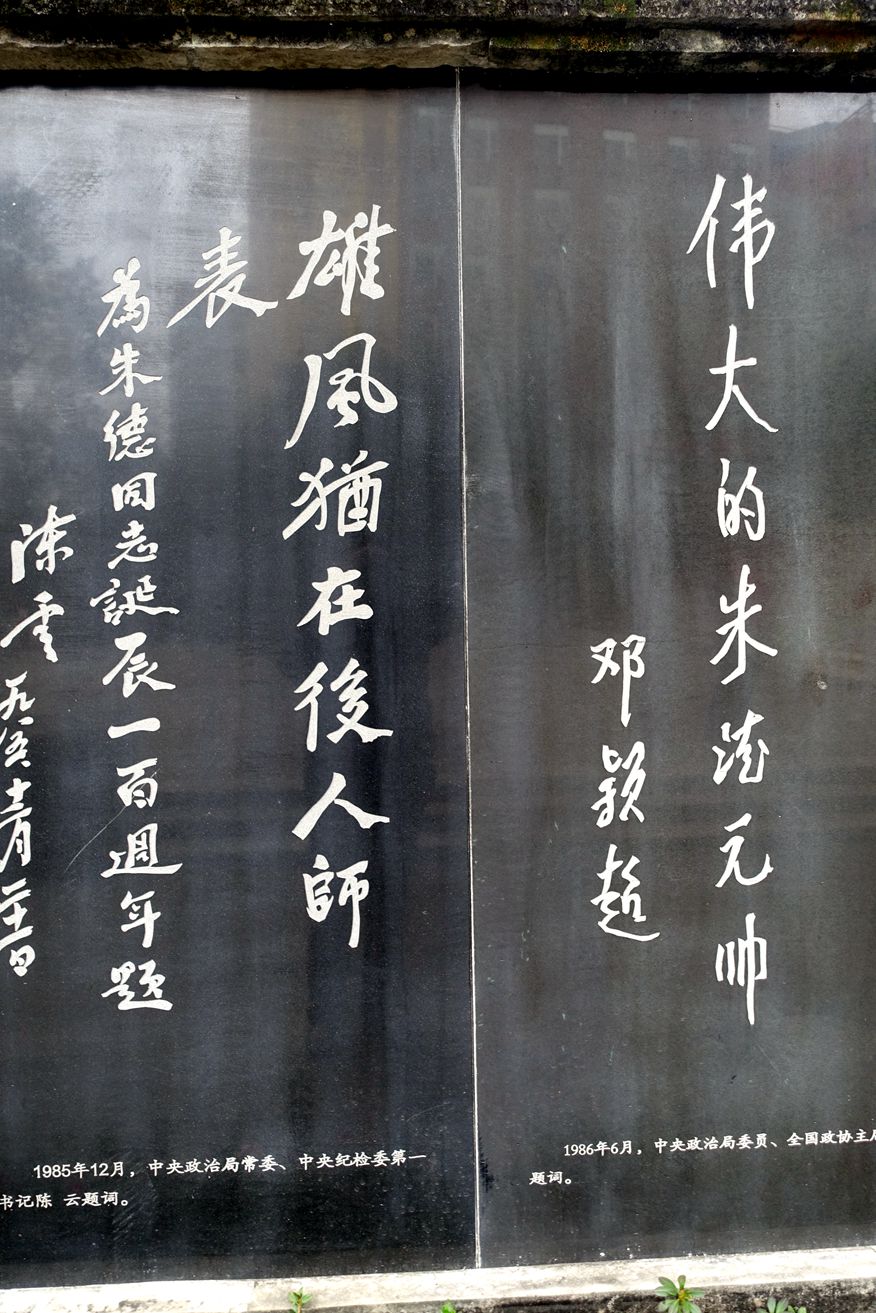 伟大的朱德元帅
邓颖超
1986年6月，中央政治局委员、全国政协主席
题词。
雄风猶在後人師
表
為朱德同志誕辰一百週年题
陈雲
1985年12月，中央政治局常委、中央纪检委第一
书记陈 云题词。